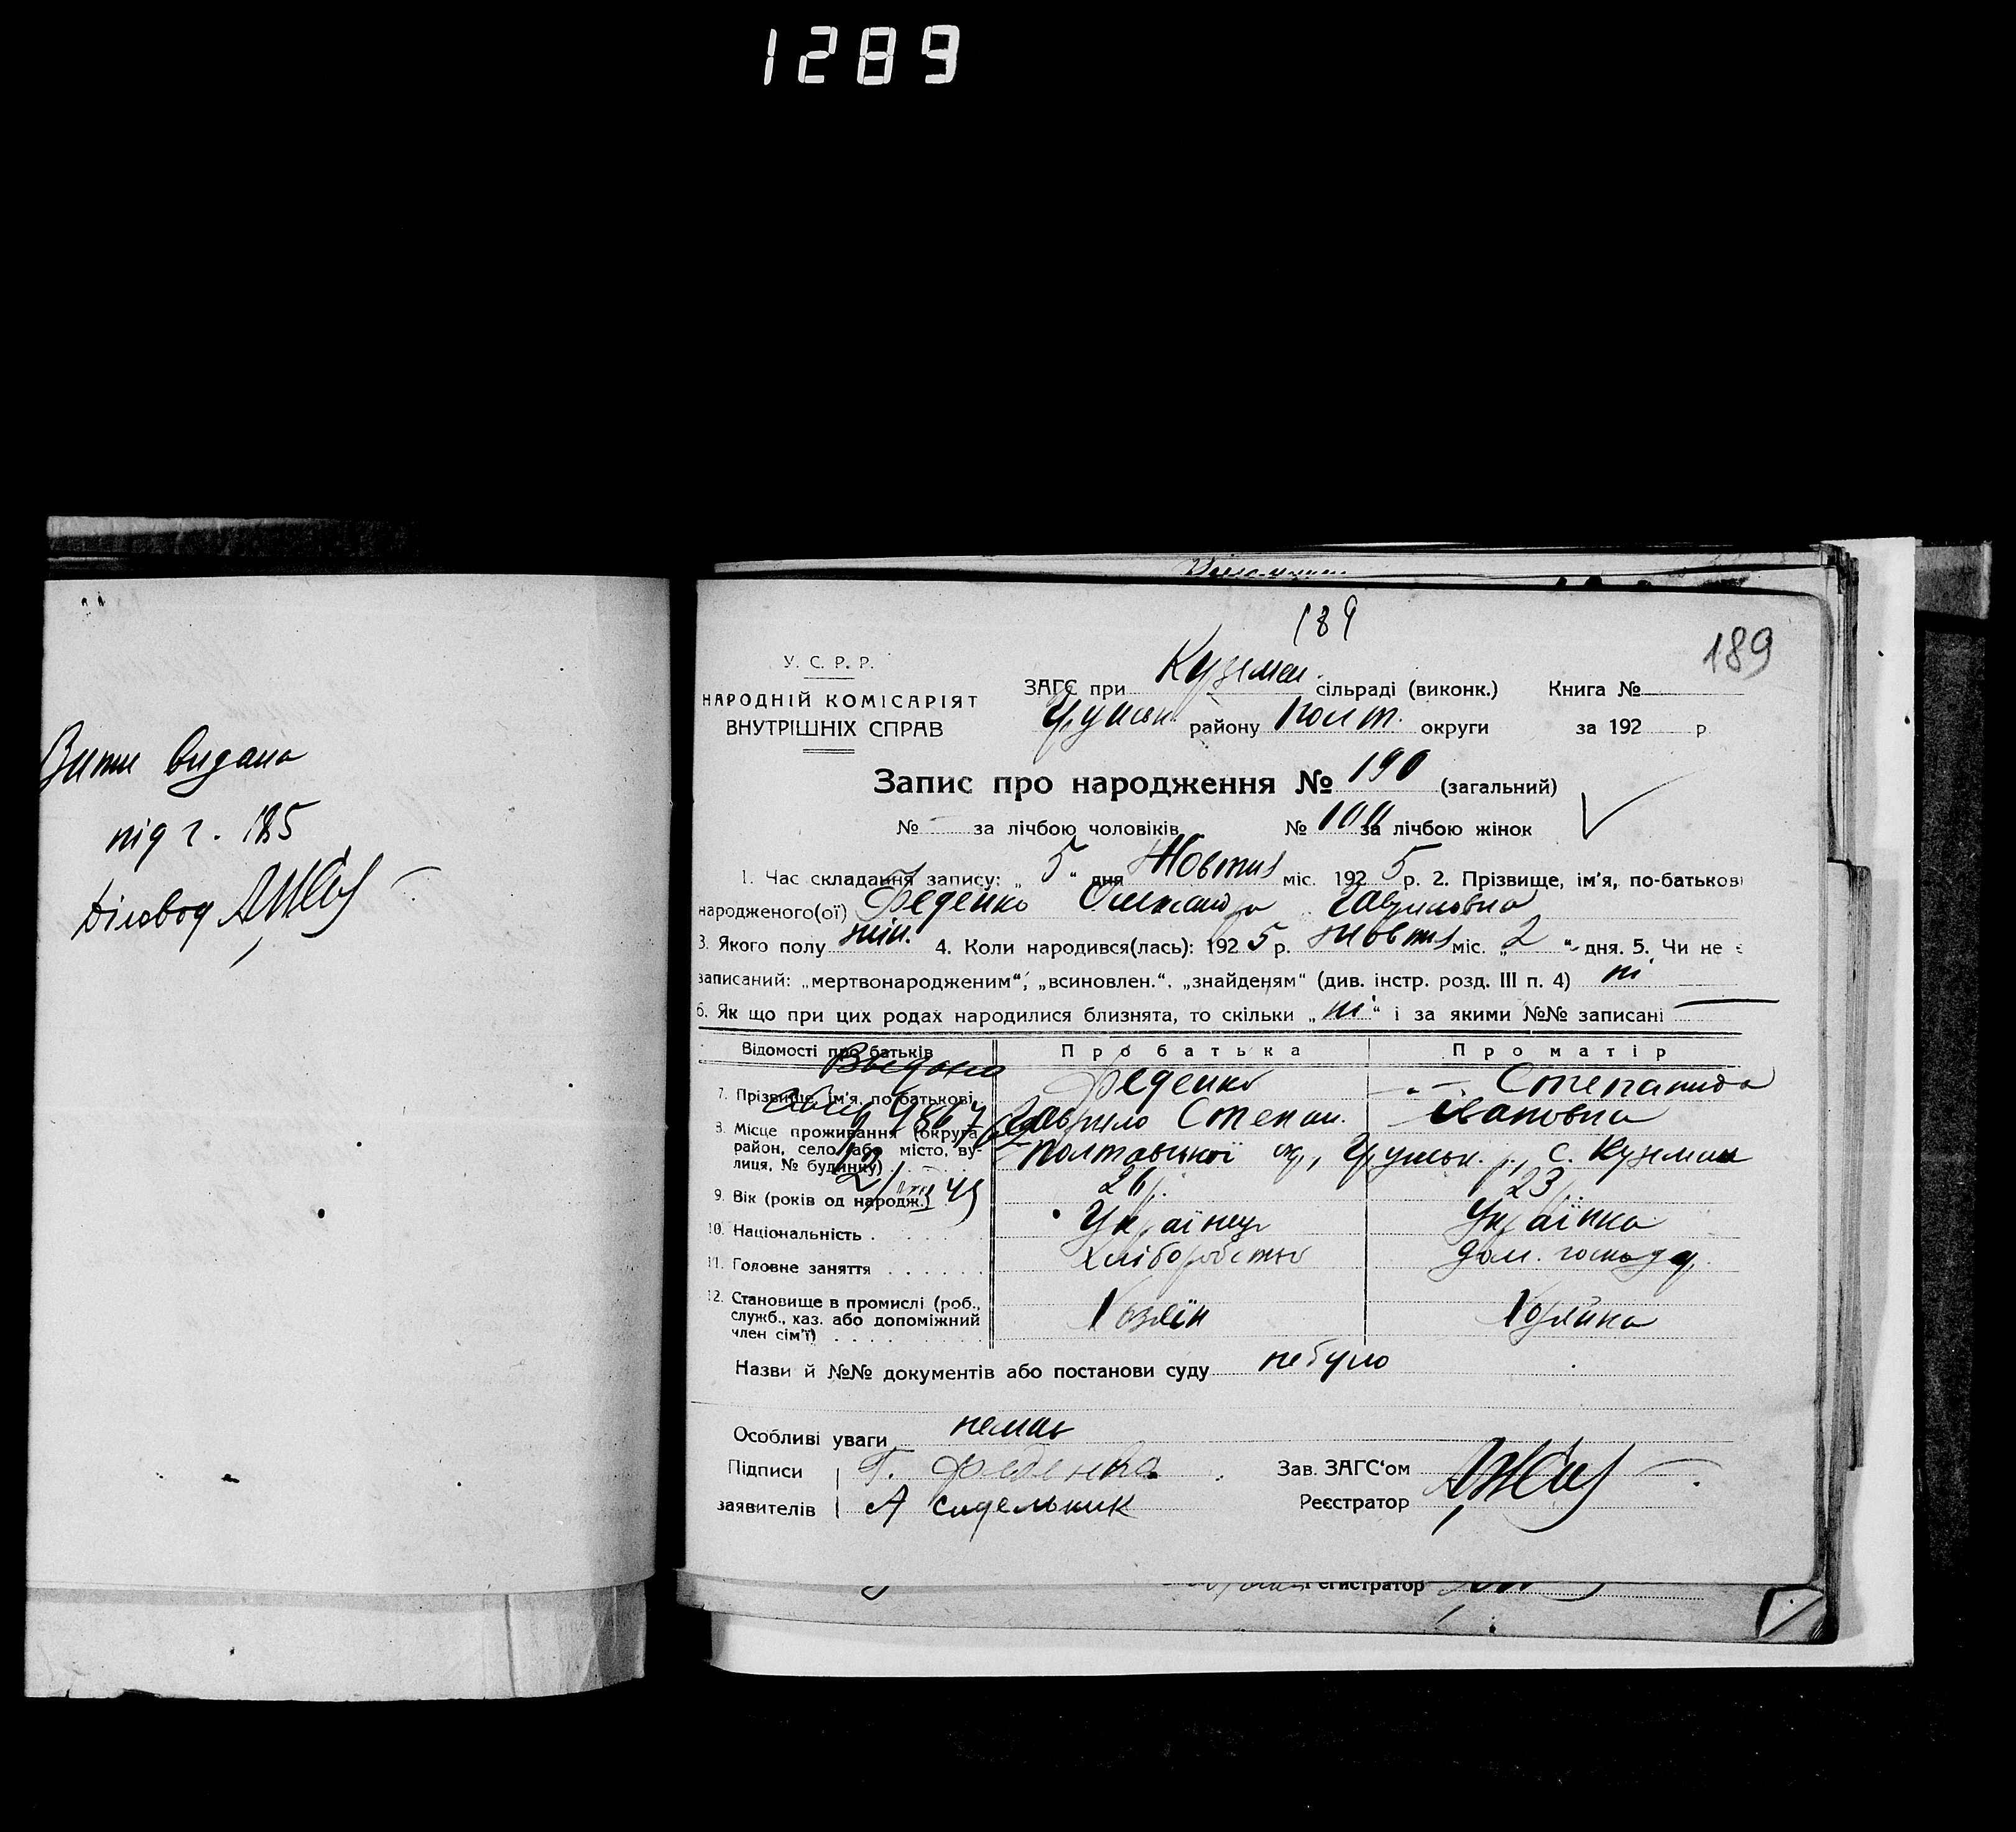 1289
Витяг видана
під г. 185
Діловод
189
189
У. С. Р. Р.
НАРОДНІЙ КОМІСАРІЯТ
ВНУТРІШНІХ СПРАВ
ЗАГС при Кузмен. сільраді (виконк.) Книга №
району Полт. округи за 192 р
Запис про народження № 190 (загальний)
№ — за лічбою чоловіків № 100 за лічбою жінок
1. Час складання запису: „5“ дня Жовтня міс. 1925 р. 2. Прізвище, ім'я, по-батькові
народженого(ої) Феденко Олександра Гавриловна
3. Якого полу жін. 4. Коли народився(лась): 1925 р. Жовтня міс. „2“ дня. 5. Чи не є
записаний: „мертвонародженим“, „всиновлен.“, „знайденям“ (див. інстр. розд. III п. 4) ні
6. Як що при цих родах народилися близнята, то скільки „ні“ і за якими №№ записані —
Відомості про батьків Про батька Про матір
Выдано
7. Прізвище, ім'я, по-батькові Феденко -„- Степанида
Гаврило Степан. Івановна
8. Місце проживання (округа, район, село або місто, вулиця, № будинку) Полтавської окр., Грунськ. р., с. Кузмин
9. Вік (років од народж.) 26 р. 23 р.
10. Національність Українец Українка
11. Головне заняття Хліборобство Дом. господ.
12. Становище в промислі (роб., служб., хаз. або допоміжний член сім'ї) Хозяїн Хозяйка
Назви й №№ документів або постанови суду не було
Особливі уваги немає
Підписи Г. Феденко Зав. ЗАГС'ом
заявителів А Сидельник Реєстратор
Регистратор